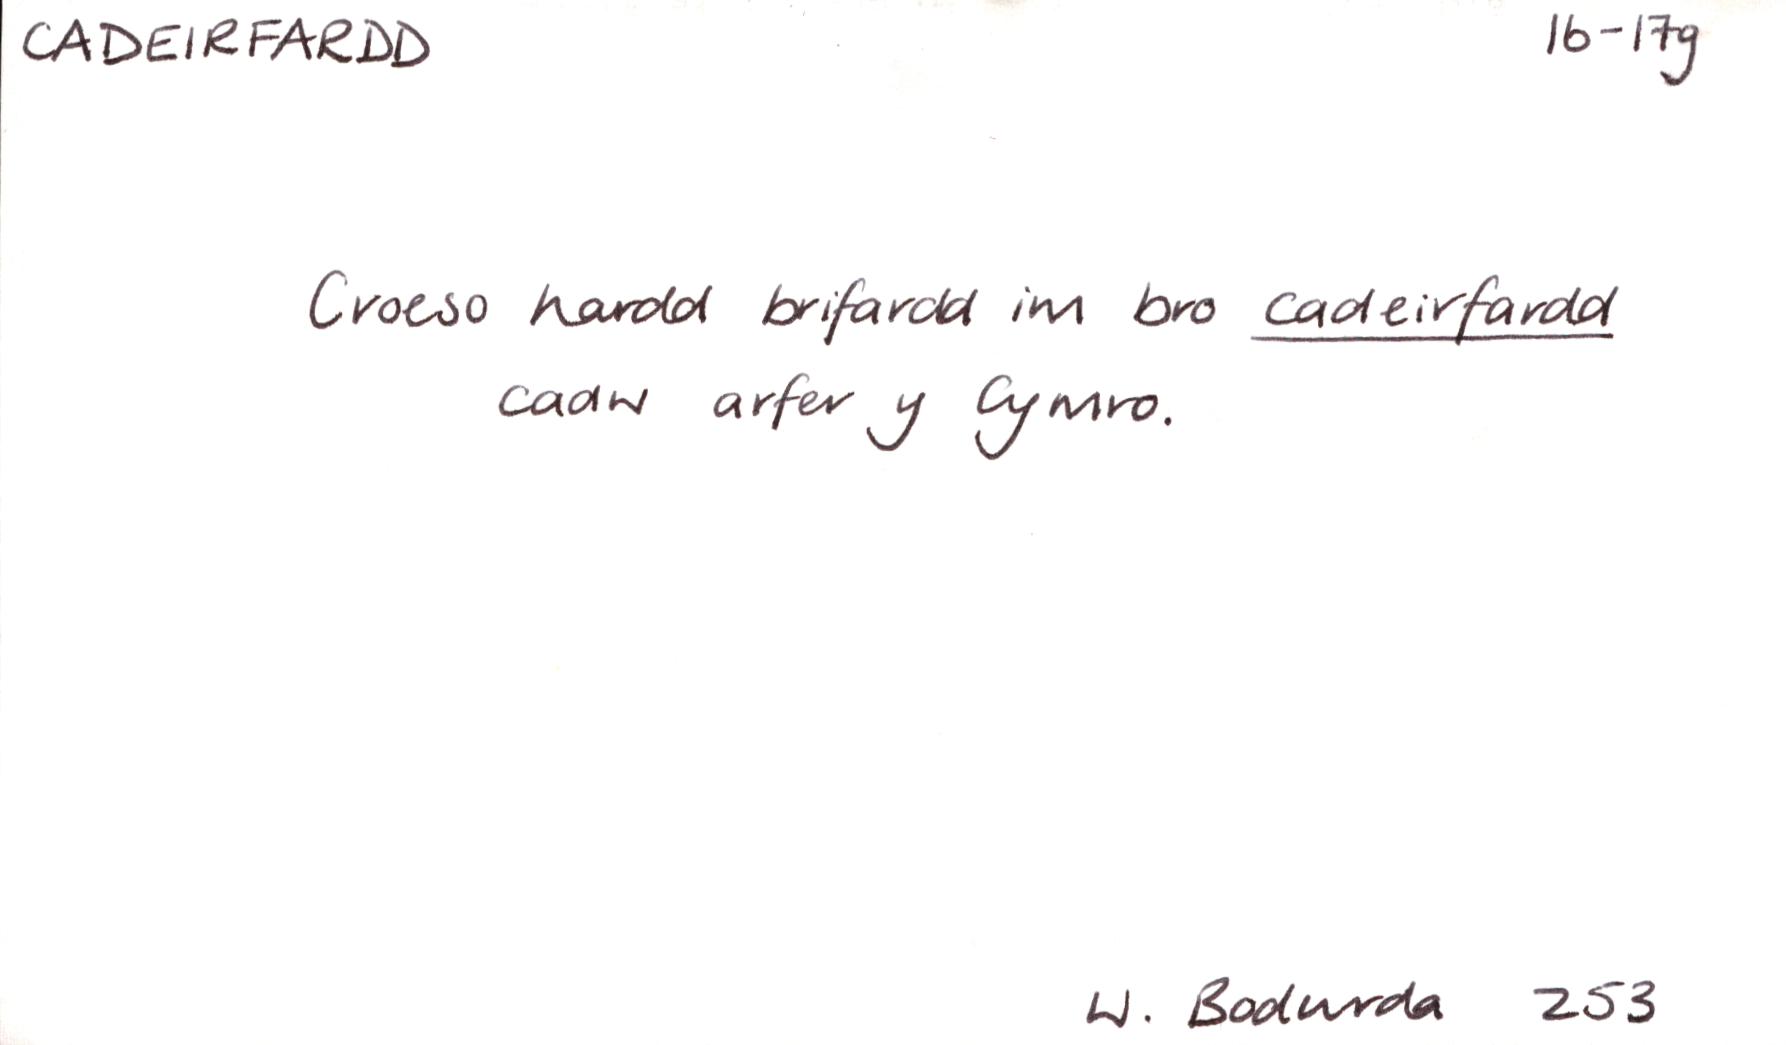 CADEIRFARDD 16-17g
Croeso hardd brifardd im bro cadeirfardd
cadw arfer y Cymro.
W. Bodwrda 253